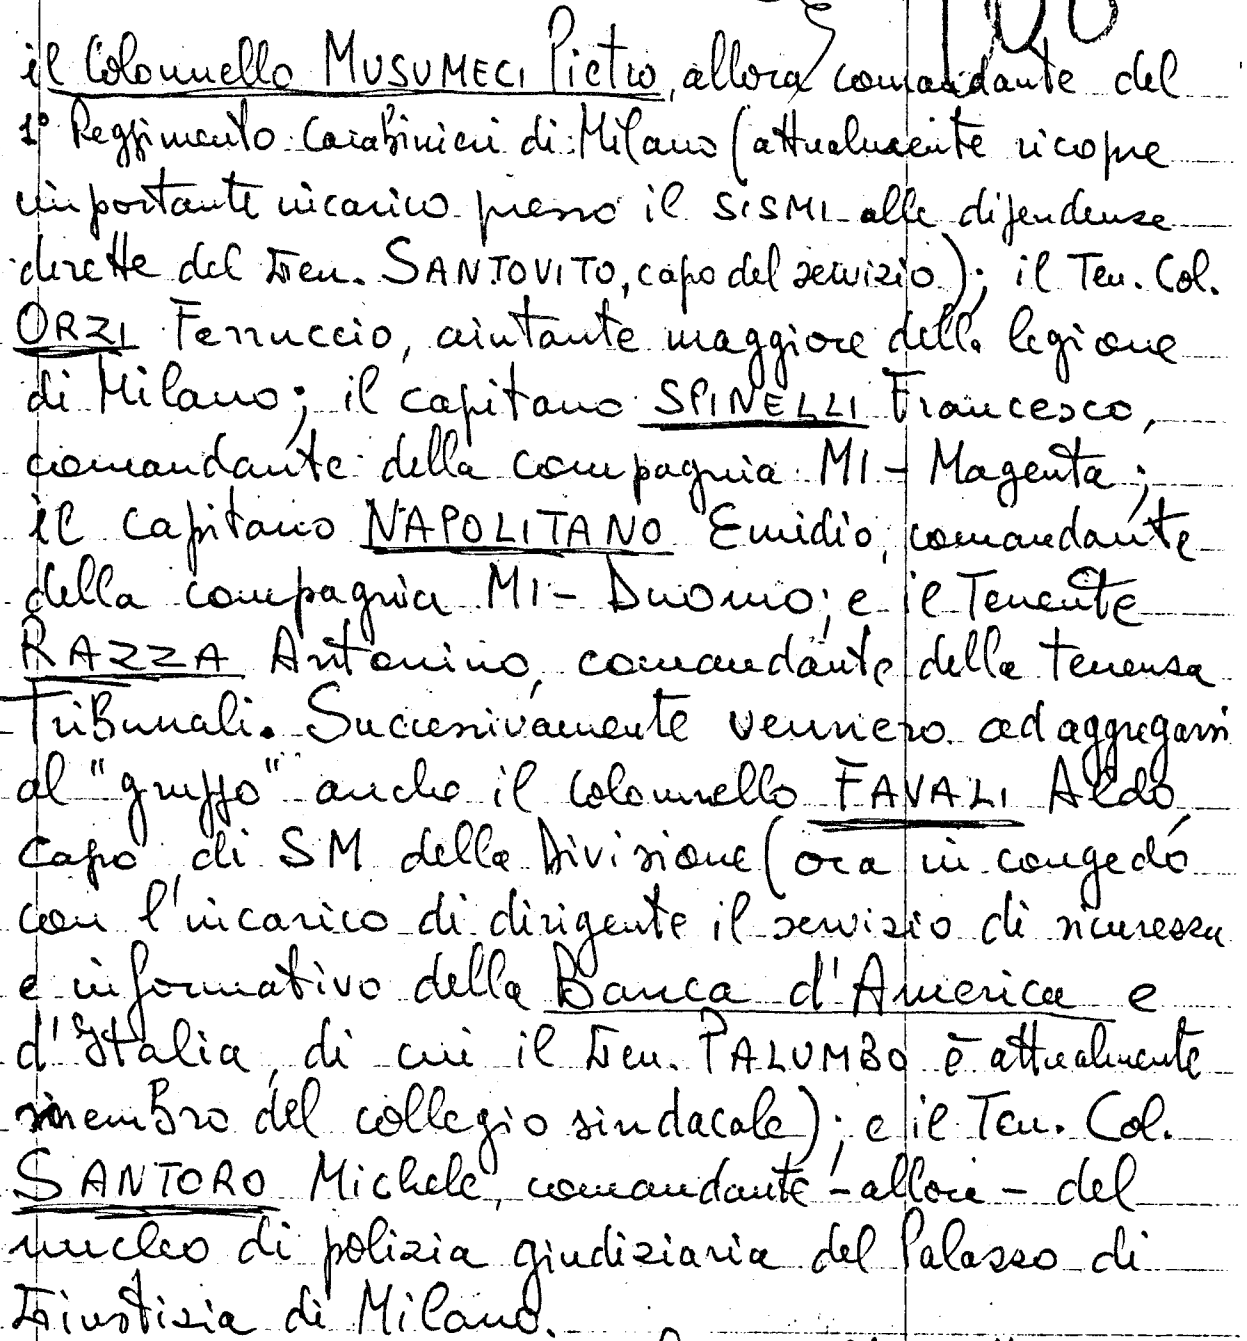 il Colonnello MUSUMECI Pietro, allora comandante del
1° Reggimento Carabinieri di Milano (attualmente ricopre
importante incarico presso il SISMI alle dipendenze
dirette del Gen. SANTOVITO, capo del servizio); il Ten. Col.
ORZI Ferruccio, aiutante maggiore della legione
di Milano; il capitano SPINELLI Francesco,
comandante della compagnia MI - Magenta;
il capitano NAPOLITANO Emidio, comandante
della compagnia MI - Duomo; e il Tenente
RAZZA Antonino, comandante della tenenza
Tribunali. Successivamente vennero ad aggregarsi
al "gruppo" anche il colonnello FAVALI Aldo,
capo di SM della Divisione (ora in congedo
con l'incarico di dirigente il servizio di sicurezza
e informativo della Banca d'America e
d'Italia, di cui il Gen. PALUMBO è attualmente
membro del collegio sindacale); e il Ten. Col.
SANTORO Michele, comandante - allora - del
nucleo di polizia giudiziaria del Palazzo di
Giustizia di Milano.